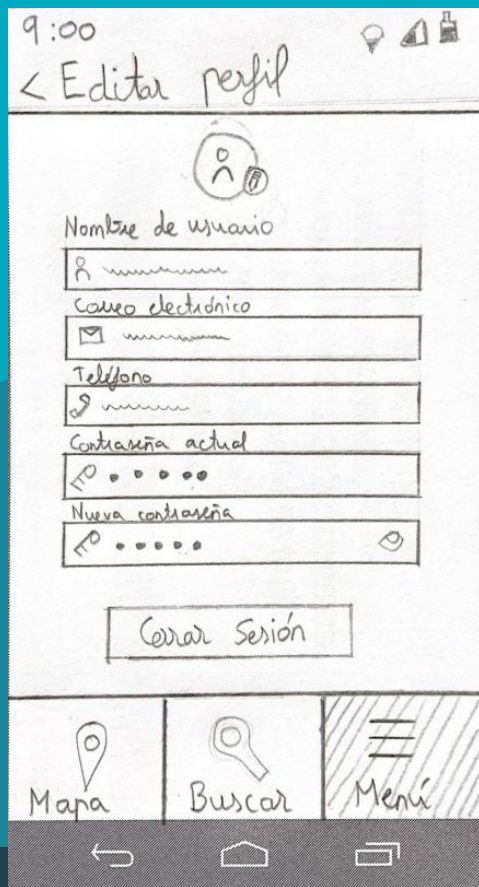 9:00
< Editar perfil
Nombre de usuario
Correo electrónico
Teléfono
Contraseña actual
Nueva contraseña
Cerrar Sesión
Mapa
Buscar
Menú